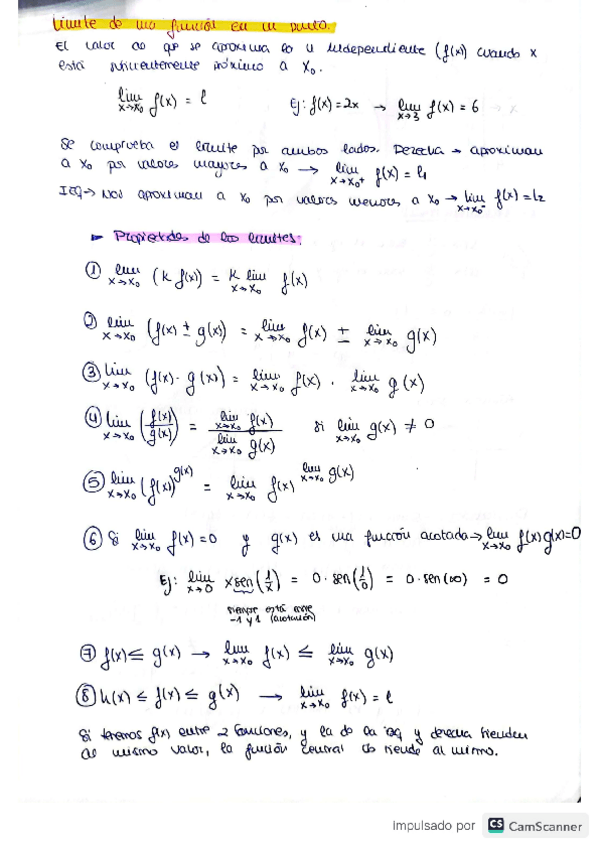 Límite de una función en un punto.
El valor al que se aproxima la v independiente (f(x)) cuando x
está suficientemente próximo a x₀.
lim x→x₀ f(x) = l Ej: f(x) = 2x → lim x→3 f(x) = 6
Se comprueba el límite por ambos lados. Derecha → aproximan
a x₀ por valores mayores a x₀ → lim x→x₀⁺ f(x) = l₁
IZQ → Nos aproximan a x₀ por valores menores a x₀ → lim x→x₀⁻ f(x) = l₂
► Propiedades de los límites:
① lim x→x₀ (k f(x)) = k lim x→x₀ f(x)
② lim x→x₀ (f(x) ± g(x)) = lim x→x₀ f(x) ± lim x→x₀ g(x)
③ lim x→x₀ (f(x) · g(x)) = lim x→x₀ f(x) · lim x→x₀ g(x)
④ lim x→x₀ (f(x)/g(x)) = lim x→x₀ f(x) / lim x→x₀ g(x) si lim x→x₀ g(x) ≠ 0
⑤ lim x→x₀ (f(x))^g(x) = lim x→x₀ f(x)^lim x→x₀ g(x)
⑥ Si lim x→x₀ f(x) = 0 y g(x) es una función acotada → lim x→x₀ f(x) g(x) = 0
Ej: lim x→0 x sen(1/x) = 0 · sen(1/0) = 0 · sen(∞) = 0
siempre está entre
-1 y 1 (acotación)
⑦ f(x) ≤ g(x) → lim x→x₀ f(x) ≤ lim x→x₀ g(x)
⑧ h(x) ≤ f(x) ≤ g(x) → lim x→x₀ f(x) = l
Si tenemos f(x) entre 2 funciones, y la de la izq y derecha tienden
al mismo valor, la función central tiende al mismo.
Impulsado por CS CamScanner